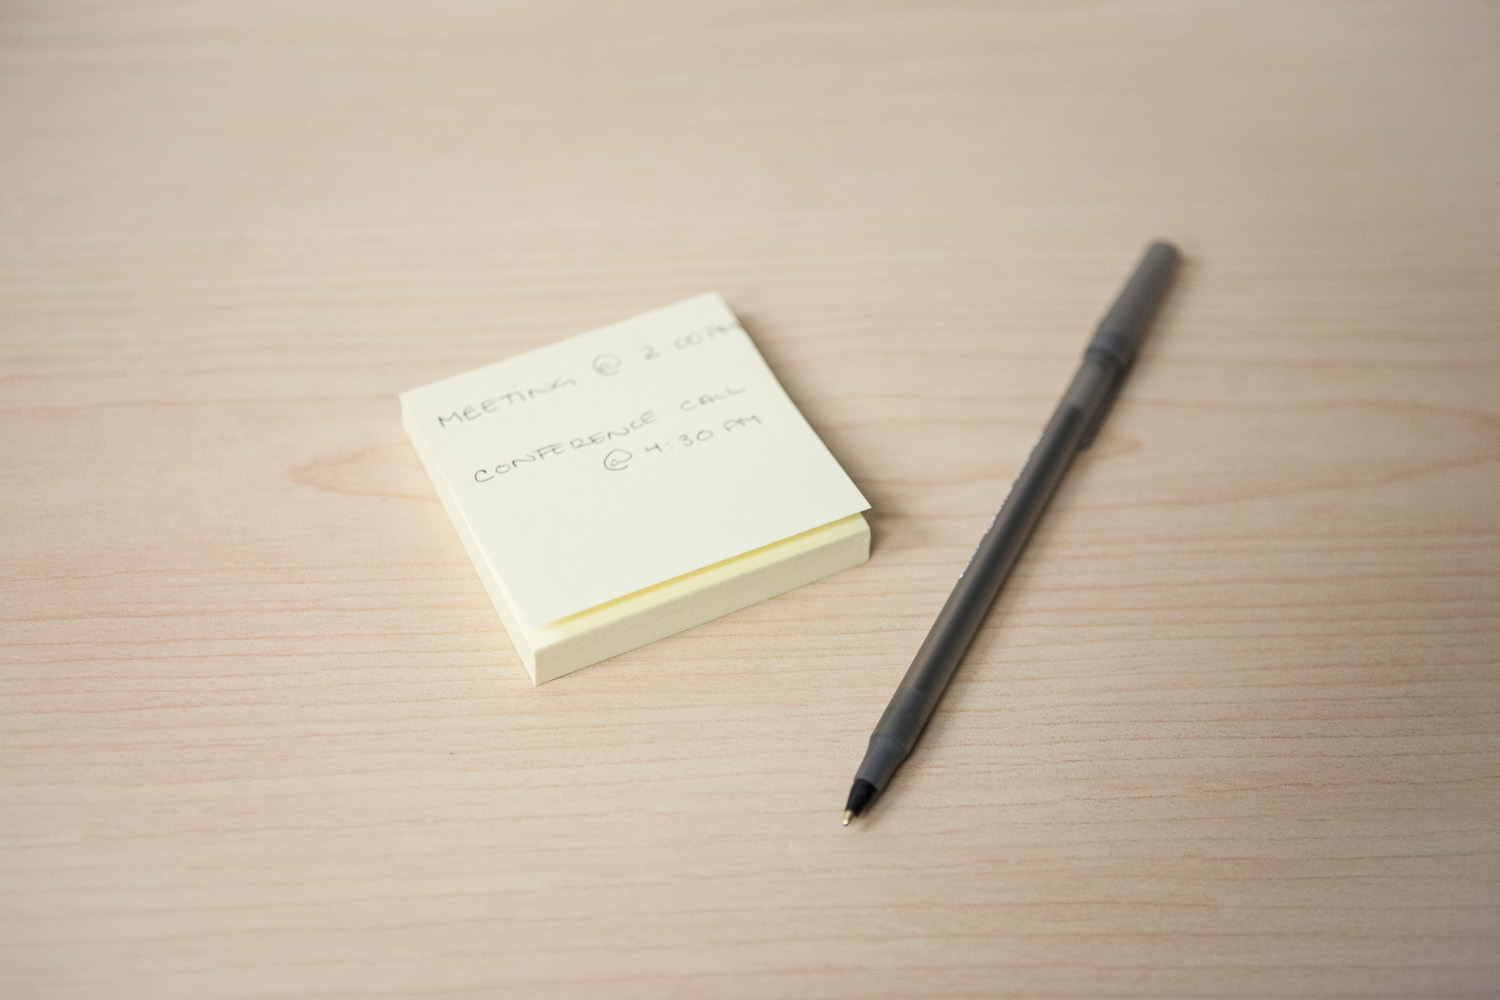 MEETING @ 2:00 PM
CONFERENCE CALL
@ 4:30 PM